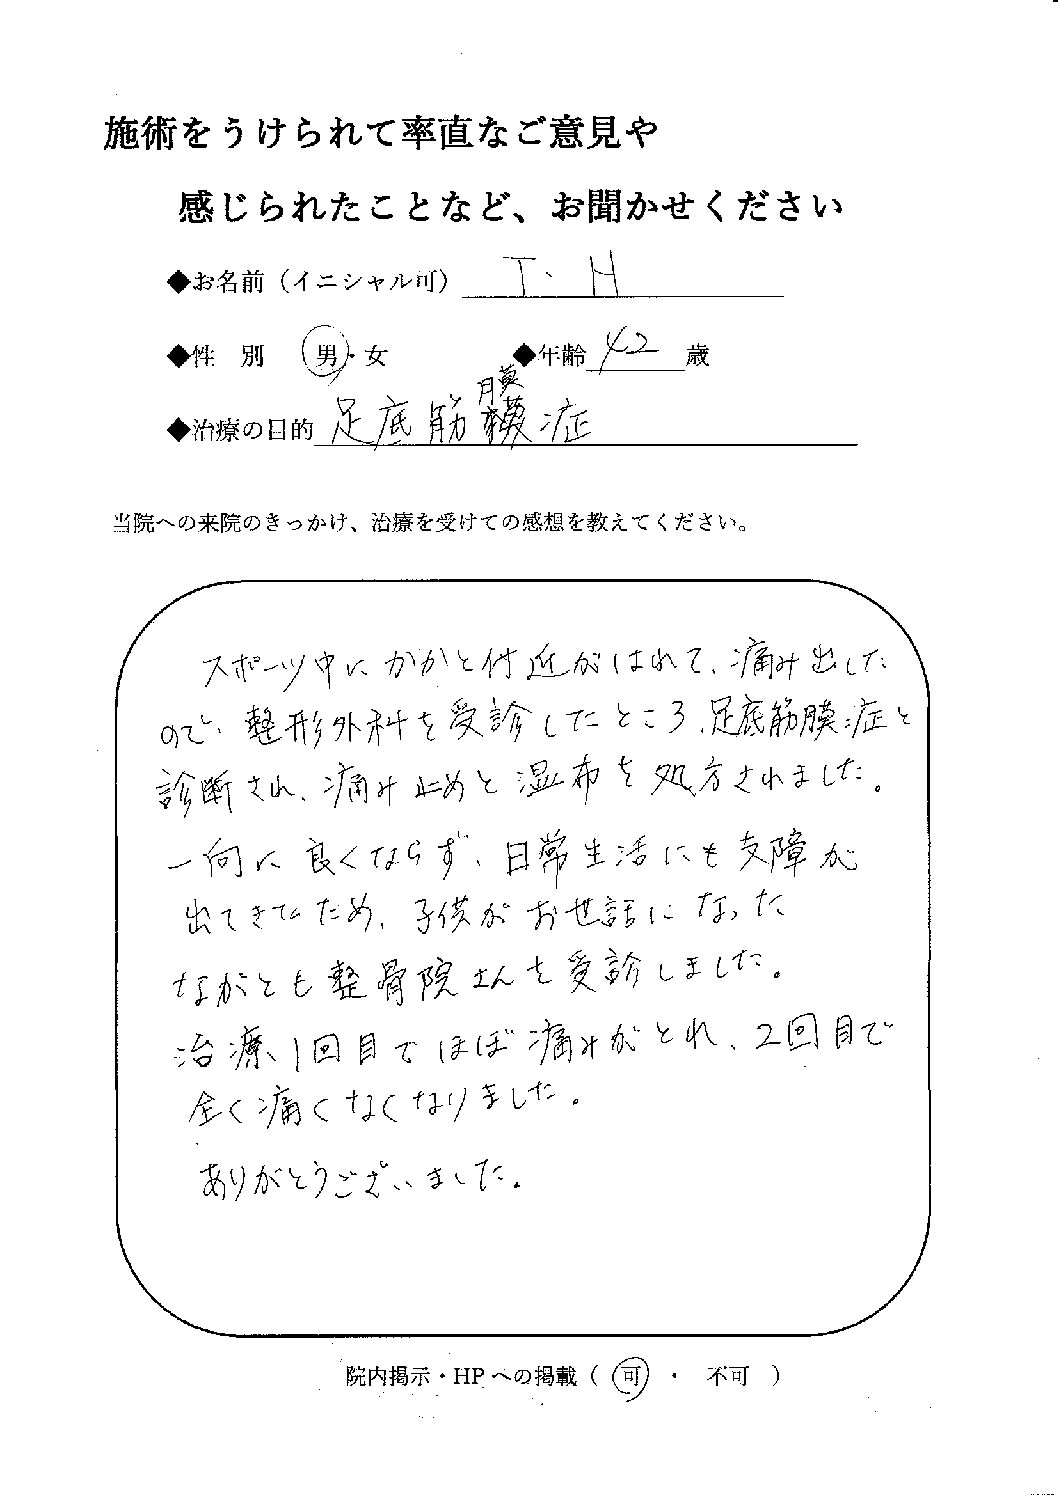 施術をうけられて率直なご意見や
感じられたことなど、お聞かせください
◆お名前（イニシャル可） T・H
◆性 別 男・女 ◆年齢 42 歳
膜
◆治療の目的 足底筋症
当院への来院のきっかけ、治療を受けての感想を教えてください。
スポーツ中にかかと付近がはれて、痛み出した
ので、整形外科を受診したところ、足底筋膜症と
診断され、痛み止めと湿布を処方されました。
一向に良くならず、日常生活にも支障が
出てきたため、子供がお世話になった
ながとも整骨院さんを受診しました。
治療、1回目でほぼ痛みがとれ、2回目で
全く痛くなくなりました。
ありがとうございました。
院内掲示・HPへの掲載（ 可 ・ 不可 ）